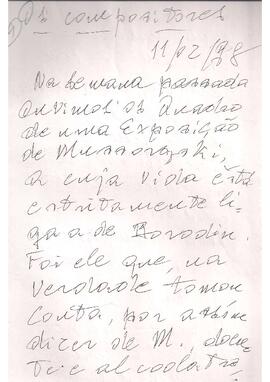 Os compositores
11/02/98
Na semana passada
ouvimos os Quadros
de uma Exposição
de Mussorgski,
a cuja vida está
estritamente li-
gaa de Borodin.
Foi ele que, na
verdade tomou
conta, por
dizer de M., doen-
te e alcoolatra